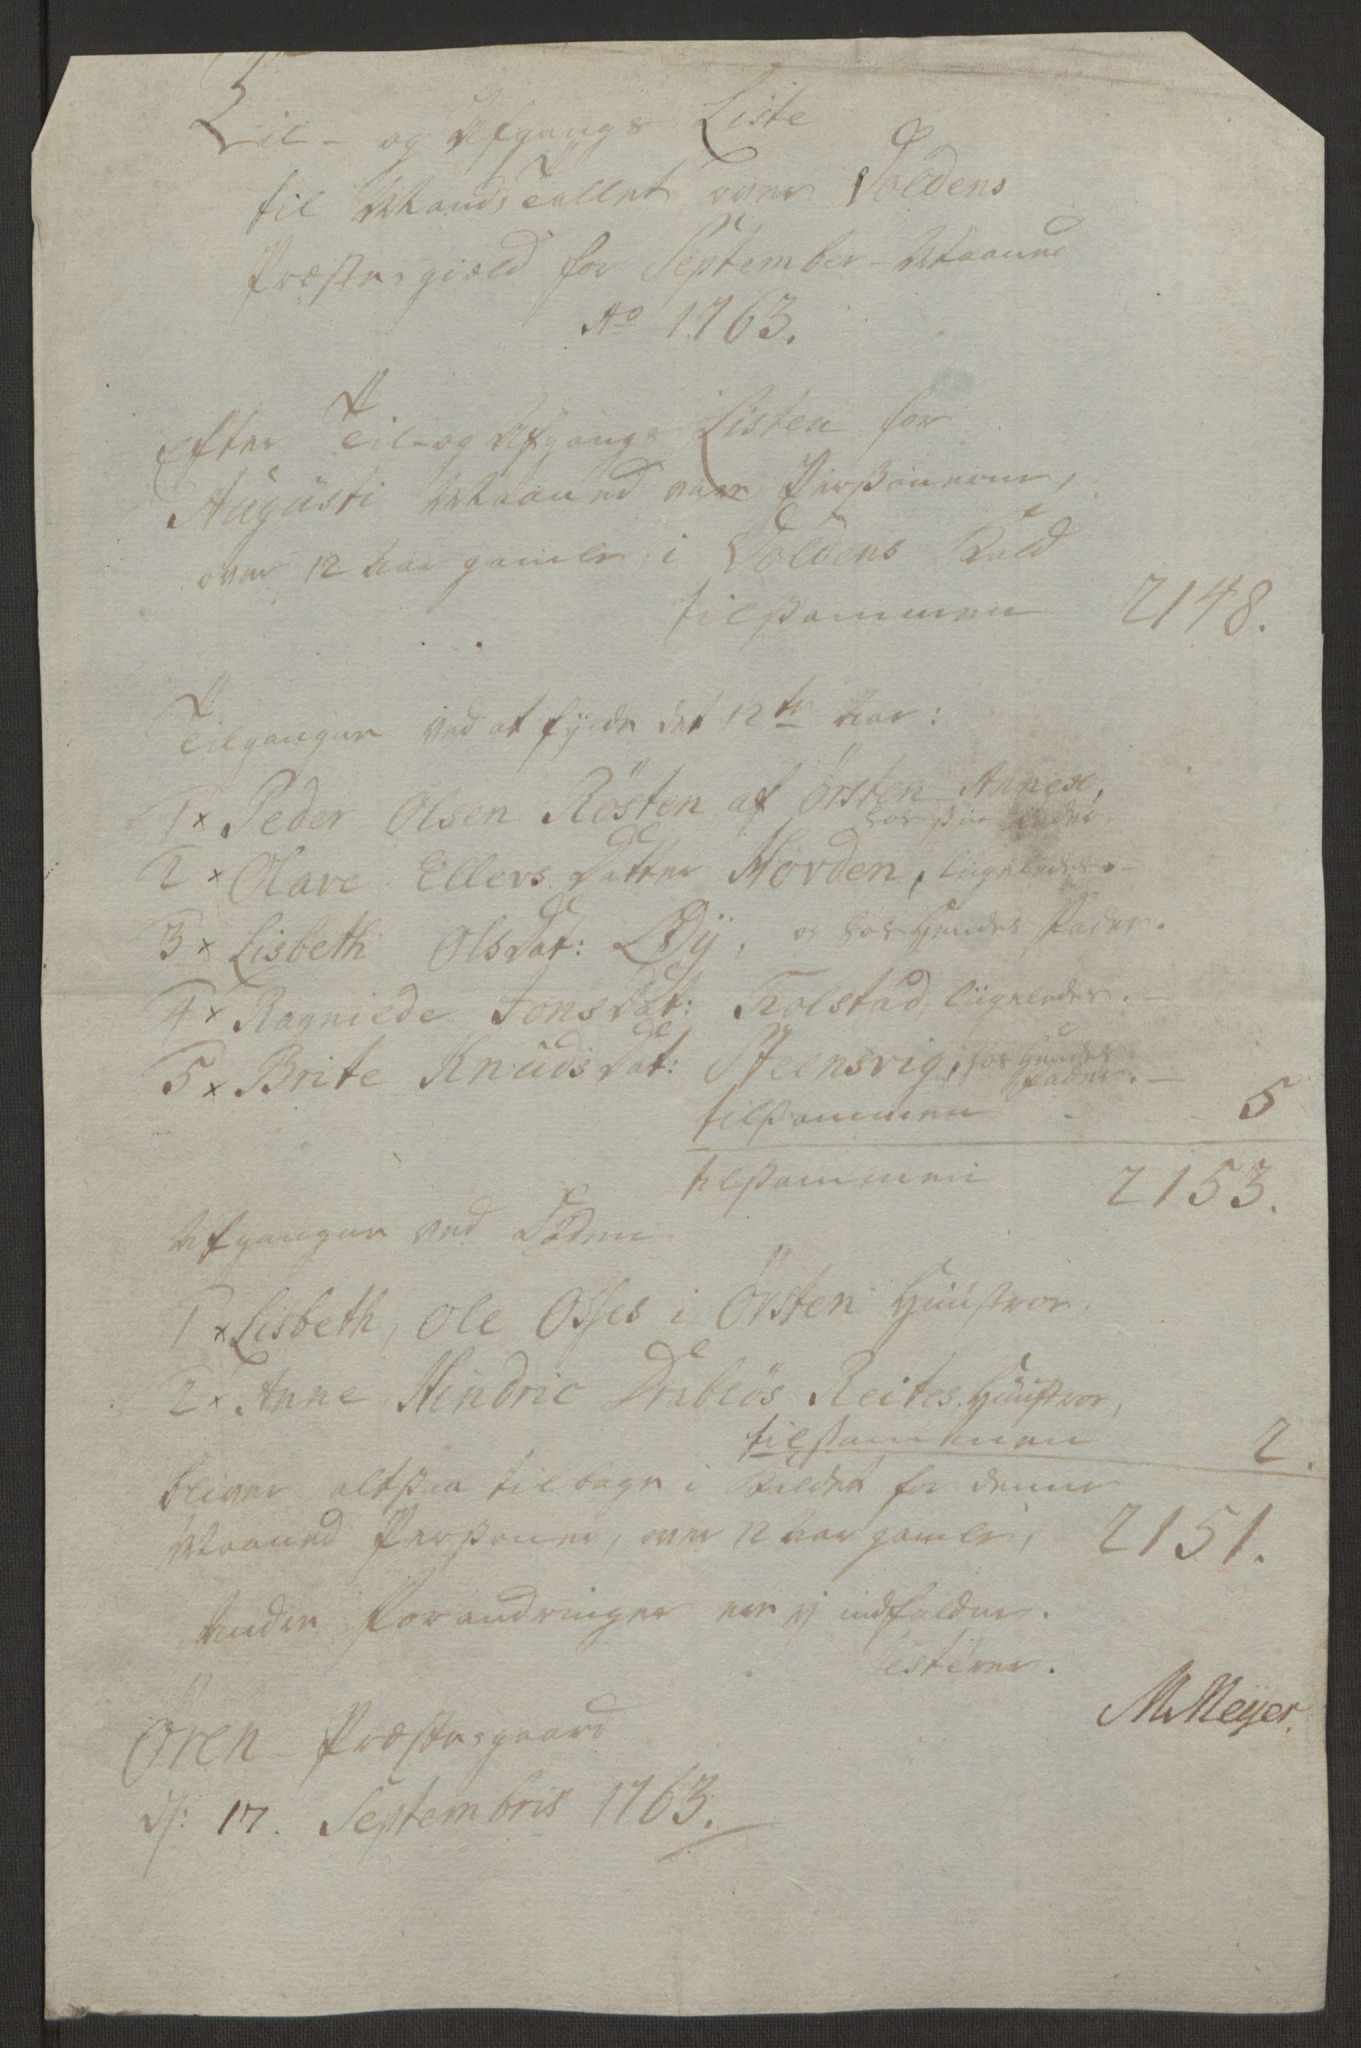 Til- og Afgangs Liste
til Mands Tallet over Voldens
Præstegield for September-Maaned
Ao 1763.
Efter Til- og Afgangs Listen for
Augusti Maaned vare Personerne,
over 12 Aar gamle, i Voldens Kald
tilsammen 2148.
Tilgangen ved at fylde det 12te Aar:
1 x Peder Olsen Rösten af Örsten Annexe,
hos sin Fader
2 x Olave Ellers Datter Hovden, ligeledes.-
3 x Lisbeth Olsdat: Öÿ, og hos hendes Fader.
4 x Ragnilde Jonsdat: Folstad, ligeledes.-
5 x Brite Knudsdat: Steensvig, hos hendes
Fader.-
tilsammen - - 5
tilsammen 2153.
Afgangen ved Döden
1 x Lisbeth, Ole Osses i Örsten Huustroe.
2 x Anne Hindric Drablös Reites Huustroe,
tilsammen 2.
bliver altsaa tilbage i Kaldet for denne
Maaned Personer, over 12 Aar gamle, 2151.
Anden Forandringer ere ej indfalden.
testerer.
M Meÿer.
Ören Præstegaard
d: 17. Septembris 1763.